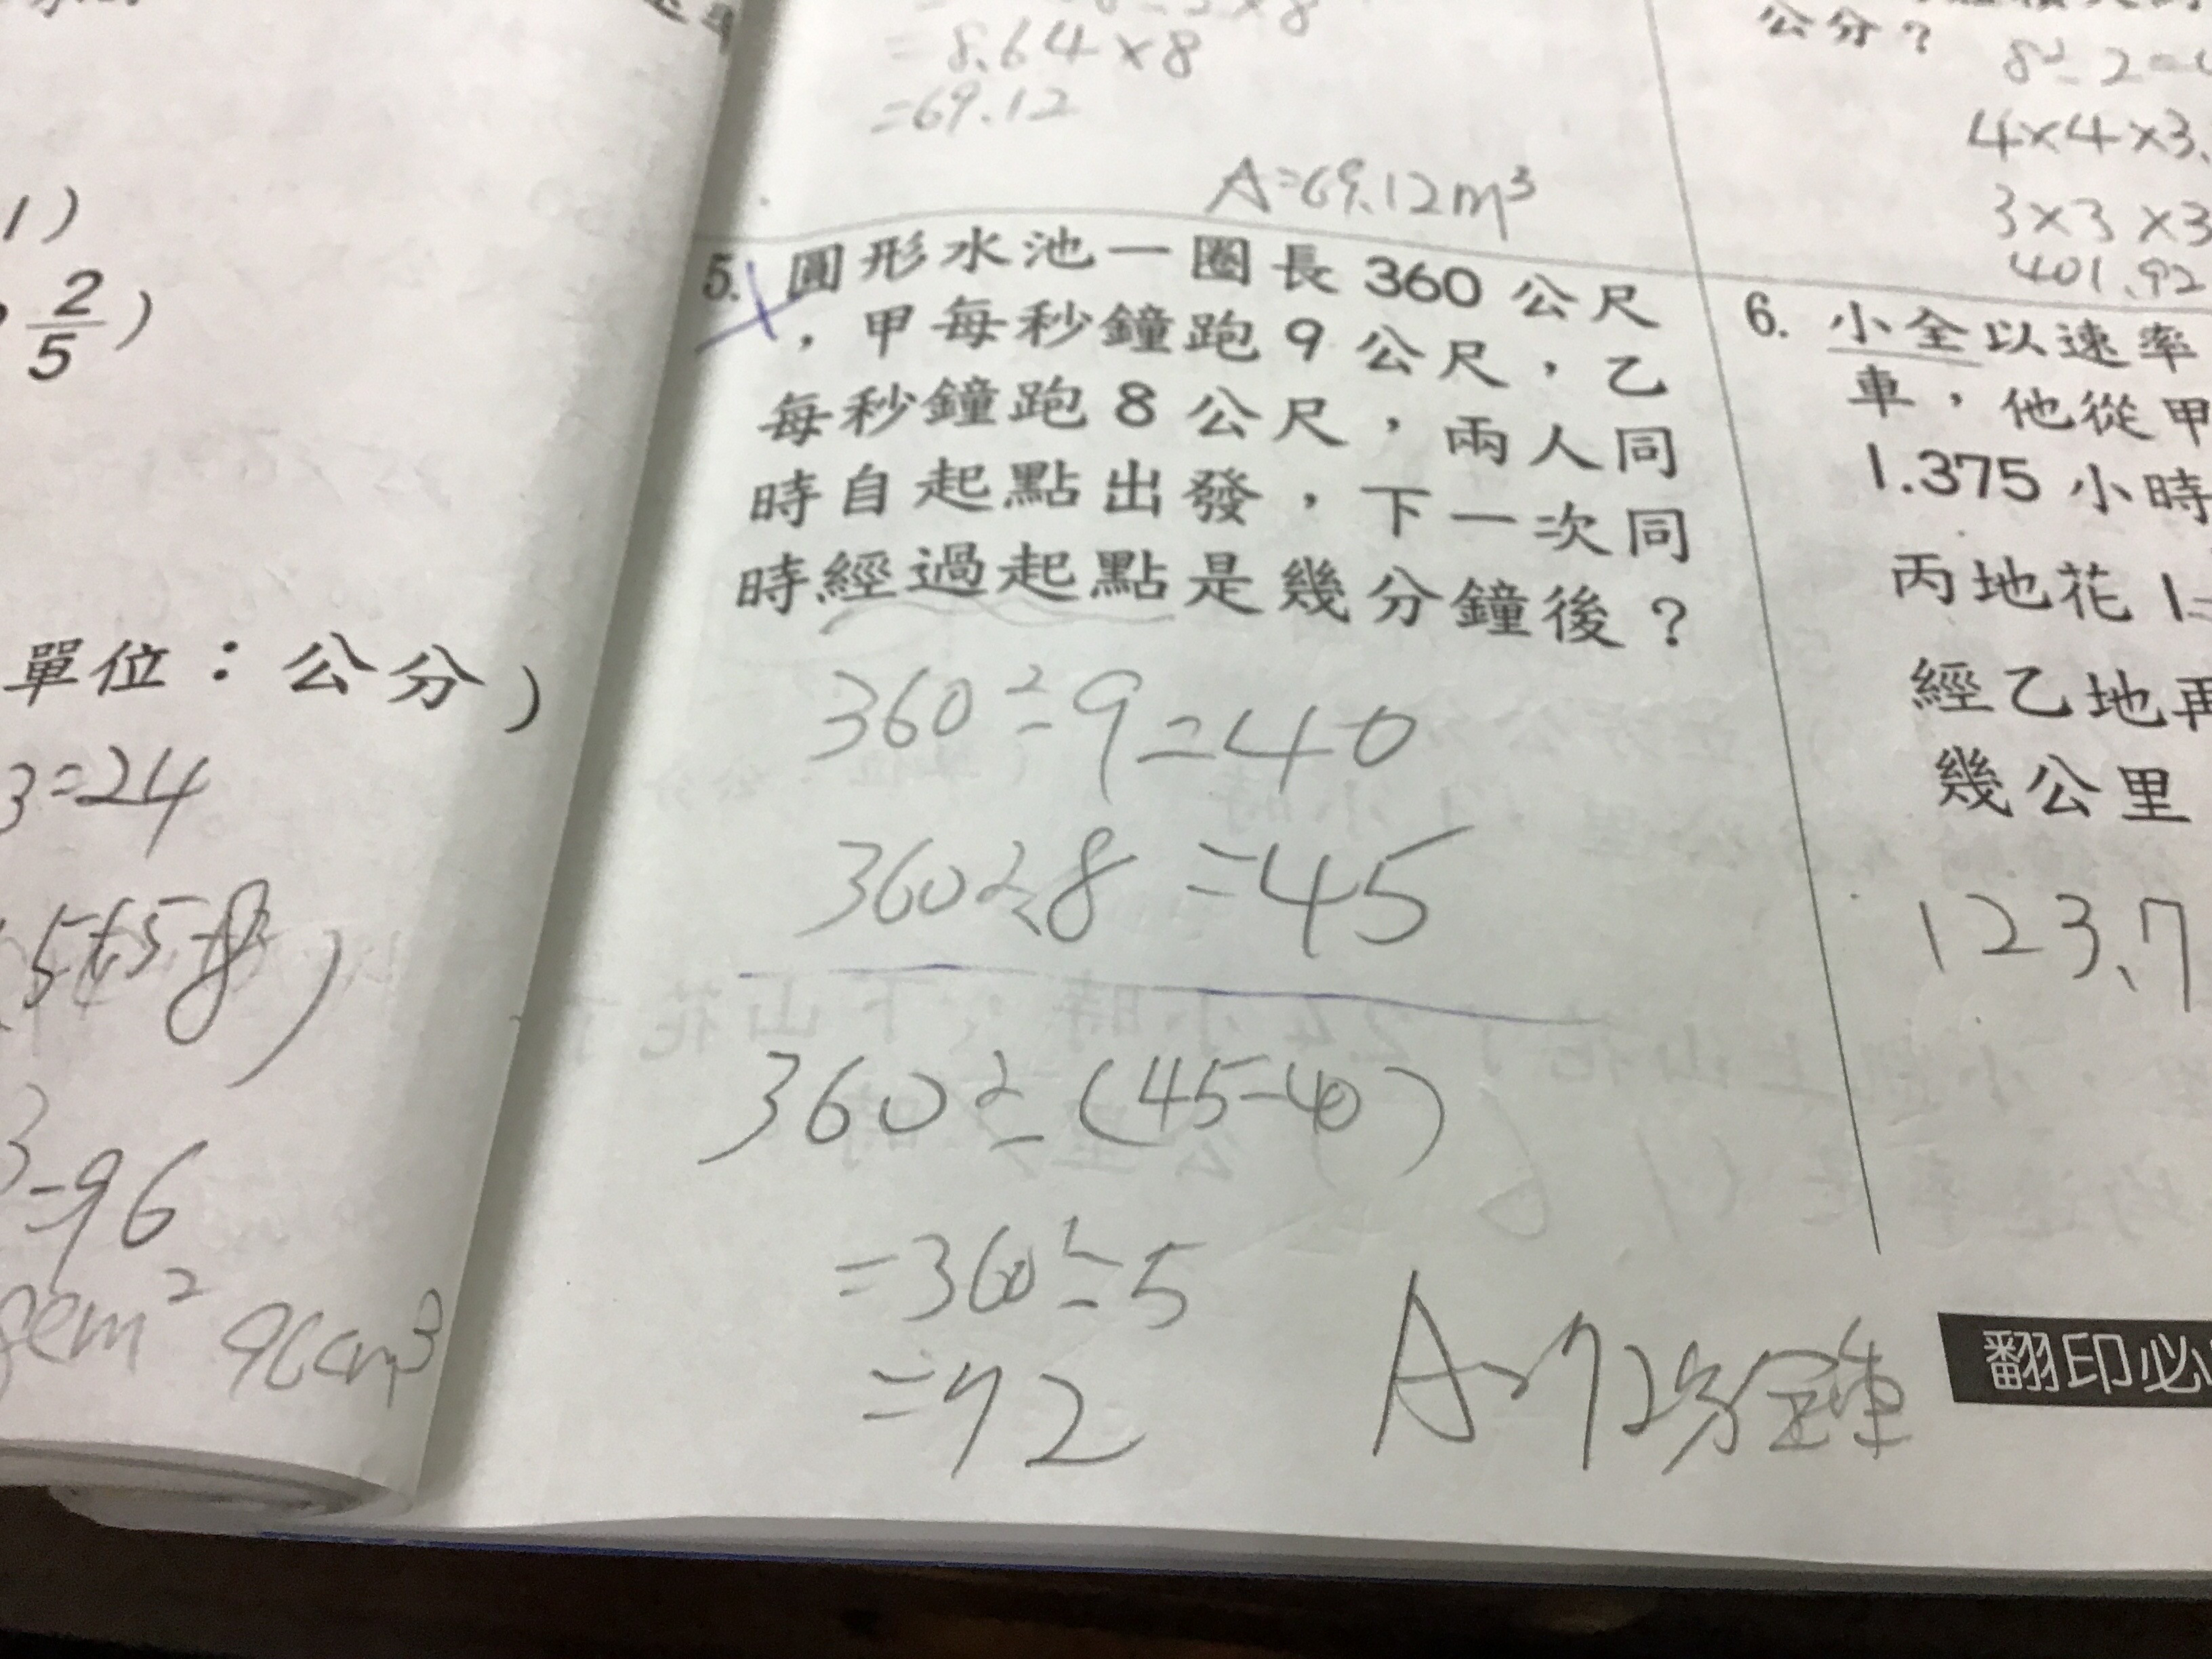 1)
2
5
)
單位：公分）
3=24
=96
96cm³
=8.64×8
=69.12
A=69.12m³
5. 圓形水池一圈長 360 公尺
，甲每秒鐘跑 9 公尺，乙
每秒鐘跑 8 公尺，兩人同
時自起點出發，下一次同
時經過起點是幾分鐘後？
360÷9=40
360÷8=45
360÷(45-40)
=360÷5
=72
A:72分鐘
公分？
8÷2=4
4×4×3.
3×3×3
401.92
6. 小全以速率
車，他從甲
1.375 小時
丙地花 1
經乙地再
幾公里
123.7
翻印必